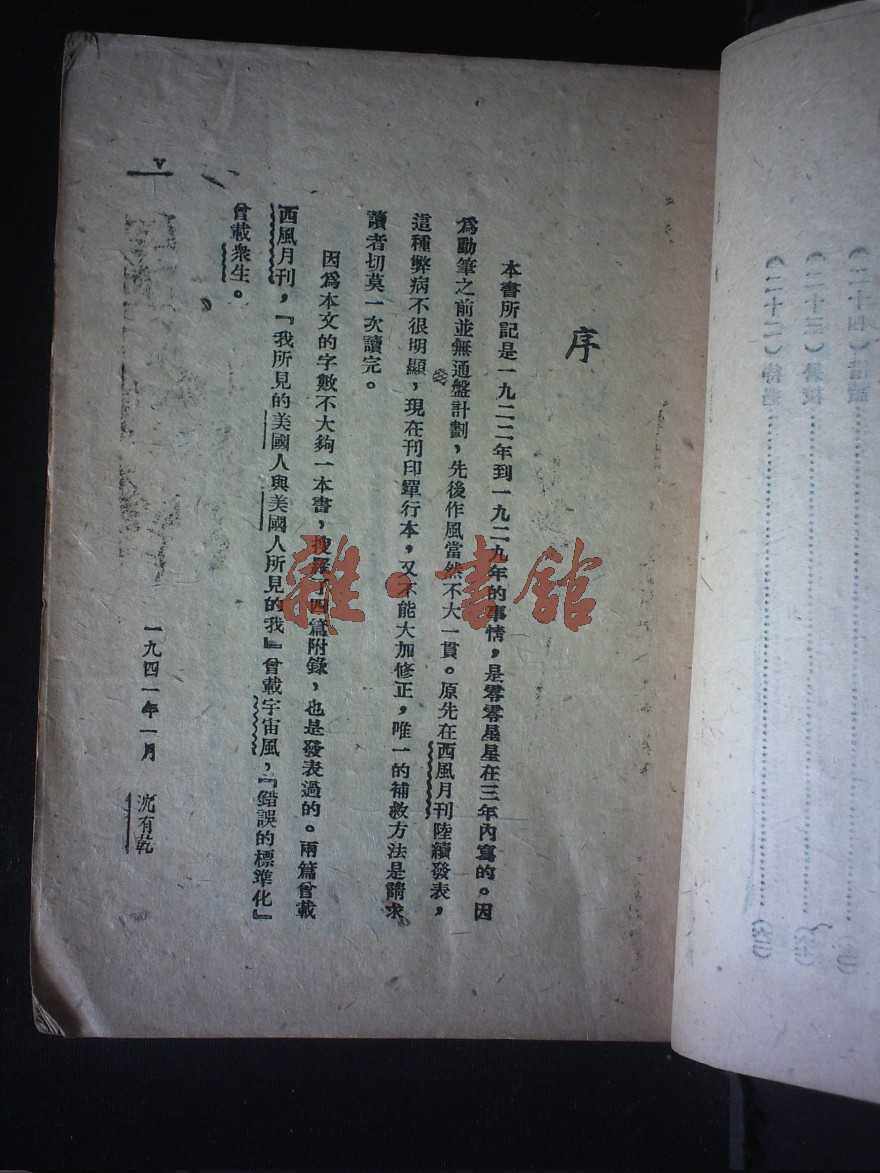 序
本書所記是一九二二年到一九二九年的事情，是零零星星在三年內寫的。因
爲動筆之前並無通盤計劃，先後作風當然不大一貫。原先在西風月刊陸續發表，
這種弊病不很明顯，現在刊印單行本，又不能大加修正，唯一的補救方法是請求
讀者切莫一次讀完。
因爲本文的字數不大夠一本書，搜羅了四篇附錄，也是發表過的。兩篇曾載
西風月刊，『我所見的美國人與美國人所見的我』曾載宇宙風，『錯誤的標準化』
曾載衆生。
一九四一年一月　沈有乾
v
雜·書館